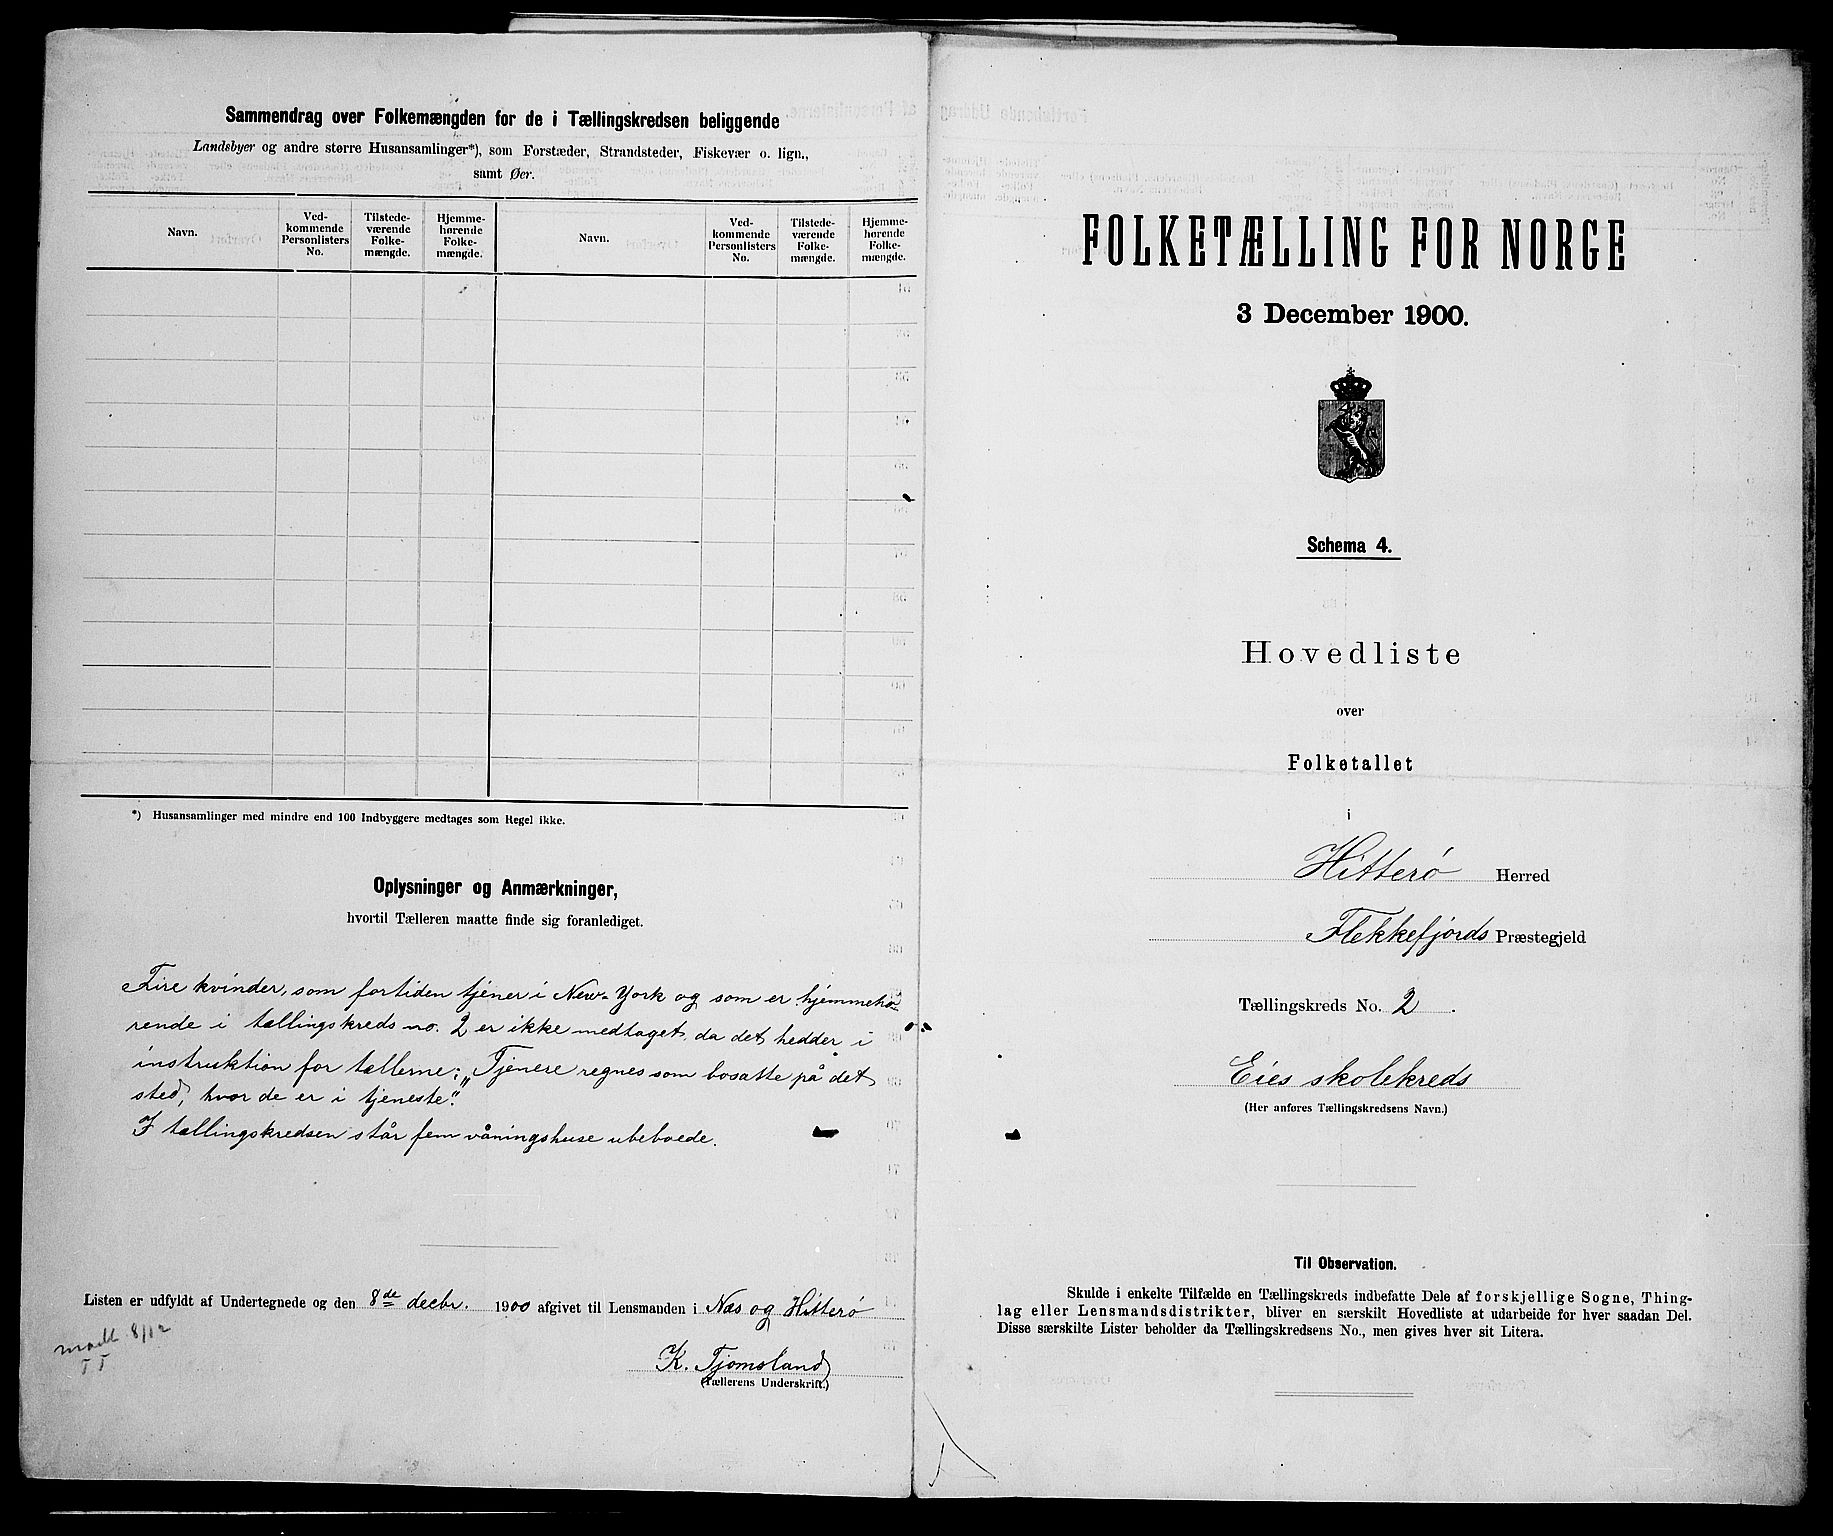 Sammendrag over Folkemængden for de i Tællingskredsen beliggende
Landsbyer og andre større Husansamlinger*), som Forstæder, Strandsteder, Fiskevær o. lign.,
samt Øer.
Navn. Ved-kommende Personlisters No. Tilstede-værende Folke-mængde. Hjemme-hørende Folke-mængde. Navn. Ved-kommende Personlisters No. Tilstede-værende Folke-mængde. Hjemme-hørende Folke-mængde.
*) Husansamlinger med mindre end 100 Indbyggere medtages som Regel ikke.
Oplysninger og Anmærkninger,
hvortil Tælleren maatte finde sig foranlediget.
Fire kvinder, som fortiden tjener i New-York og som er hjemmehø
rende i tællingskreds no. 2 er ikke medtaget, da det hedder i
instruktion for tællerne: „Tjenere regnes som bosatte på det
sted, hvor de er i tjeneste".
I tællingskredsen står fem våningshuse ubeboede.
Listen er udfyldt af Undertegnede og den 8de decbr. 1900 afgivet til Lensmanden i Næs og Hitterø
8/12
TT
K. Tjomsland
(Tællerens Underskrift.)
FOLKETÆLLING FOR NORGE
3 December 1900.
Schema 4.
Hovedliste
over
Folketallet
i
Hitterø Herred
Flekkefjords Præstegjeld
Tællingskreds No. 2.
Eies skolekreds
(Her anføres Tællingskredsens Navn.)
Til Observation.
Skulde i enkelte Tilfælde en Tællingskreds indbefatte Dele af forskjellige Sogne, Thing-
lag eller Lensmandsdistrikter, bliver en særskilt Hovedliste at udarbeide for hver saadan Del.
Disse særskilte Lister beholder da Tællingskredsens No., men gives hver sit Litera.